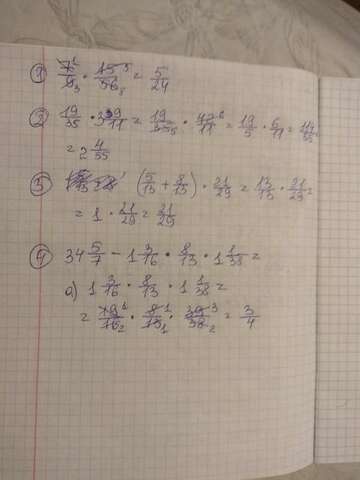 ① 7/9 · 15/56 = 5/24
② 19/35 · 3 9/11 = 19/35 · 42/11 = 19/5 · 6/11 = 114/55 =
= 2 4/55
③ (5/13 + 8/13) · 21/29 = 13/13 · 21/29 =
= 1 · 21/29 = 21/29
④ 34 5/7 - 1 3/16 · 8/13 · 1 1/38 =
а) 1 3/16 · 8/13 · 1 1/38 =
= 19/16 · 8/13 · 39/38 = 3/4